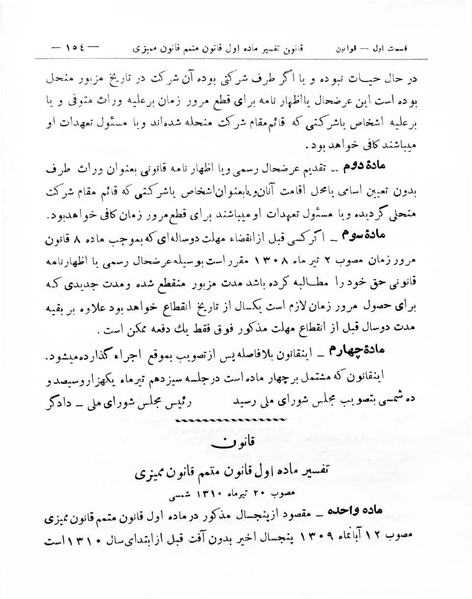 قسمت اول — قوانین قانون تفسیر ماده اول قانون متمم قانون ممیزی — ۱۵٤ —
در حال حیات نبوده و یا اگر طرف شرکتی بوده آن شرکت در تاریخ مزبور منحل
بوده است این عرضحال یا اظهار نامه برای قطع مرور زمان بر علیه وراث متوفی و یا
بر علیه اشخاص یا شرکتی که قائم مقام شرکت منحله شده اند و یا مسئول تعهدات او
میباشند کافی خواهد بود.
مادۀ دوم — تقدیم عرضحال رسمی و یا اظهار نامه قانونی بعنوان وراث طرف
بدون تعیین اسامی یا محل اقامت آنان و یا بعنوان اشخاص یا شرکتی که قائم مقام شرکت
منحلی گردیده و یا مسئول تعهدات او میباشند برای قطع مرور زمان کافی خواهد بود.
مادۀ سوم — اگر کسی قبل از انقضاء مهلت دو ساله ای که بموجب ماده ۸ قانون
مرور زمان مصوب ۲ تیر ماه ۱۳۰۸ مقرر است بوسیله عرضحال رسمی یا اظهارنامه
قانونی حق خود را مطالبه کرده باشد مدت مزبور منقطع شده و مدت جدیدی که
برای حصول مرور زمان لازم است یکسال از تاریخ انقطاع خواهد بود علاوه بر بقیه
مدت دو سال قبل از انقطاع مهلت مذکور فوق فقط یك دفعه ممکن است .
مادۀ چهارم — اینقانون بلافاصله پس از تصویب بموقع اجراء گذارده میشود.
اینقانون که مشتمل بر چهار ماده است در جلسه سیزدهم تیر ماه یکهزار و سیصد و
ده شمسی بتصویب مجلس شورای ملی رسید رئیس مجلس شورای ملی — دادگر
قانون
تفسیر ماده اول قانون متمم قانون ممیزی
مصوب ۲۰ تیر ماه ۱۳۱۰ شمسی
ماده واحده — مقصود از پنجسال مذکور در ماده اول قانون متمم قانون ممیزی
مصوب ۱۲ آبانماه ۱۳۰۹ پنجسال اخیر بدون آفت قبل از ابتدای سال ۱۳۱۰ است